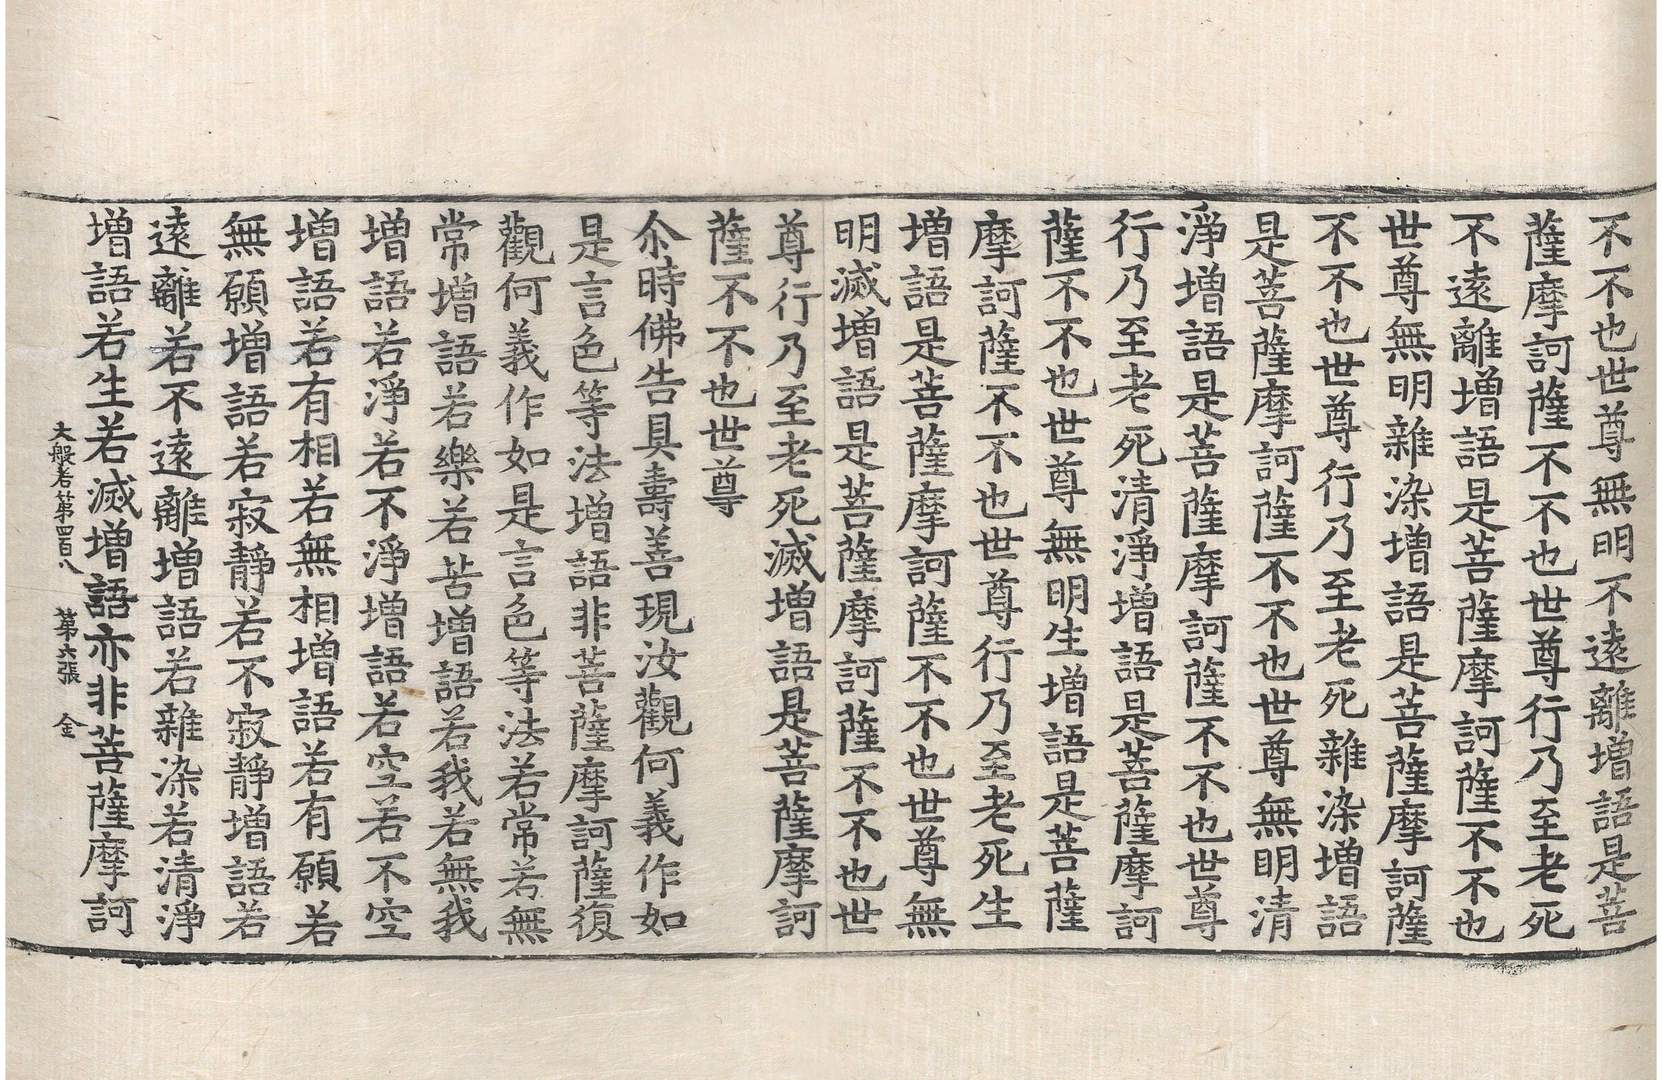 不不也世尊無明不遠離增語是菩
薩摩訶薩不不也世尊行乃至老死
不遠離增語是菩薩摩訶薩不不也
世尊無明雜染增語是菩薩摩訶薩
不不也世尊行乃至老死雜染增語
是菩薩摩訶薩不不也世尊無明清
淨增語是菩薩摩訶薩不不也世尊
行乃至老死清淨增語是菩薩摩訶
薩不不也世尊無明生增語是菩薩
摩訶薩不不也世尊行乃至老死生
增語是菩薩摩訶薩不不也世尊無
明滅增語是菩薩摩訶薩不不也世
尊行乃至老死滅增語是菩薩摩訶
薩不不也世尊
尒時佛告具壽善現汝觀何義作如
是言色等法增語非菩薩摩訶薩復
觀何義作如是言色等法若常若無
常增語若樂若苦增語若我若無我
增語若淨若不淨增語若空若不空
增語若有相若無相增語若有願若
無願增語若寂靜若不寂靜增語若
遠離若不遠離增語若雜染若清淨
增語若生若滅增語亦非菩薩摩訶
大般若第四百八 第六張 金